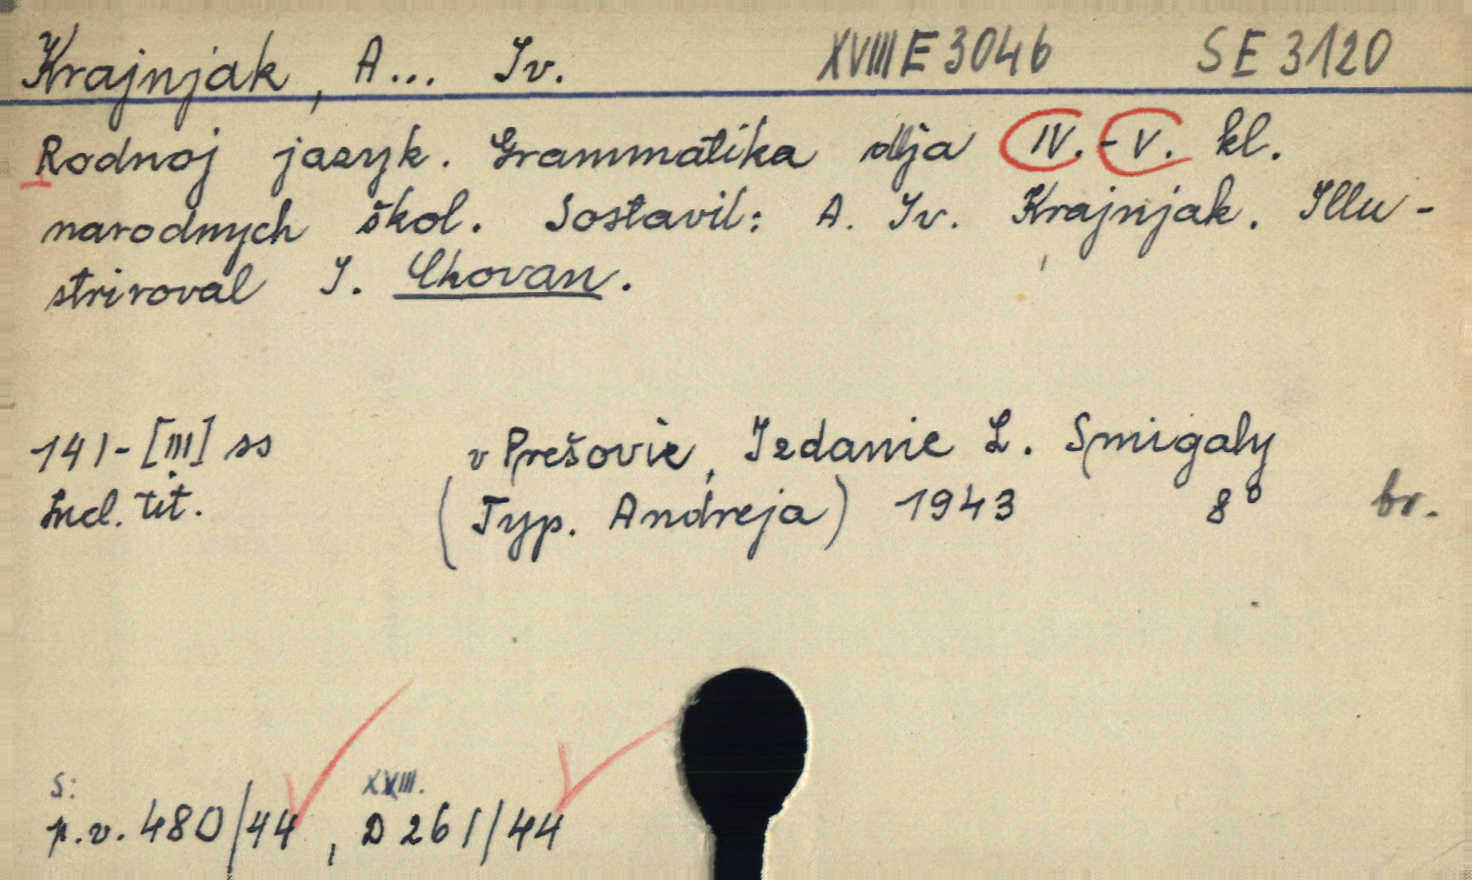 Krajnjak, A... Iv. XVIII E 3046 SE 3120
Rodnoj jazyk. Grammatika dlja IV.-V. kl.
narodnych škol. Sostavil: A. Iv. Krajnjak. Illu-
striroval I. Chovan.
141-[III] ss v Prešovie, Izdanie L. Smigaly
Incl. tit. (Typ. Andreja) 1943 8° br.
S: XXIII.
p.v. 480/44, D 261/44